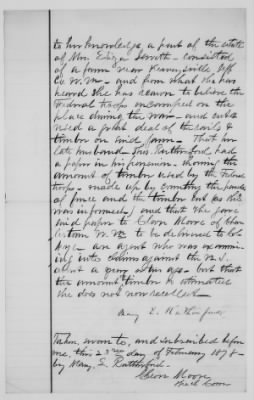 to her knowledge, a part of the estate
of Mrs. Eliza Lorrett - consisted
of a farm near Kearneysville Jeff
Co. W. Va - and from what she has
heard she has reason to believe the
Federal troops encamped on the
place during the war - and cut &
used a great deal of the rails &
timber on said farm. That her
late husband Thos. Rutherford had
a paper in his possession - showing the
amount of timber used by the Federal
troops - made up by counting the panels
of fence and the timber cut (as she
was informed) and that she gave
said paper to Cleon Moore of Charles
town W. Va to be delivered to Col
- an agent who was examin
ing into claims against the U.S.
about a year or two ago - but that
the amount timber so estimated
she does not now recollect -
Mary E. Rutherford
Taken, sworn to, and subscribed before
me, this 23rd day of February 1878 -
by Mary E. Rutherford -
Cleon Moore